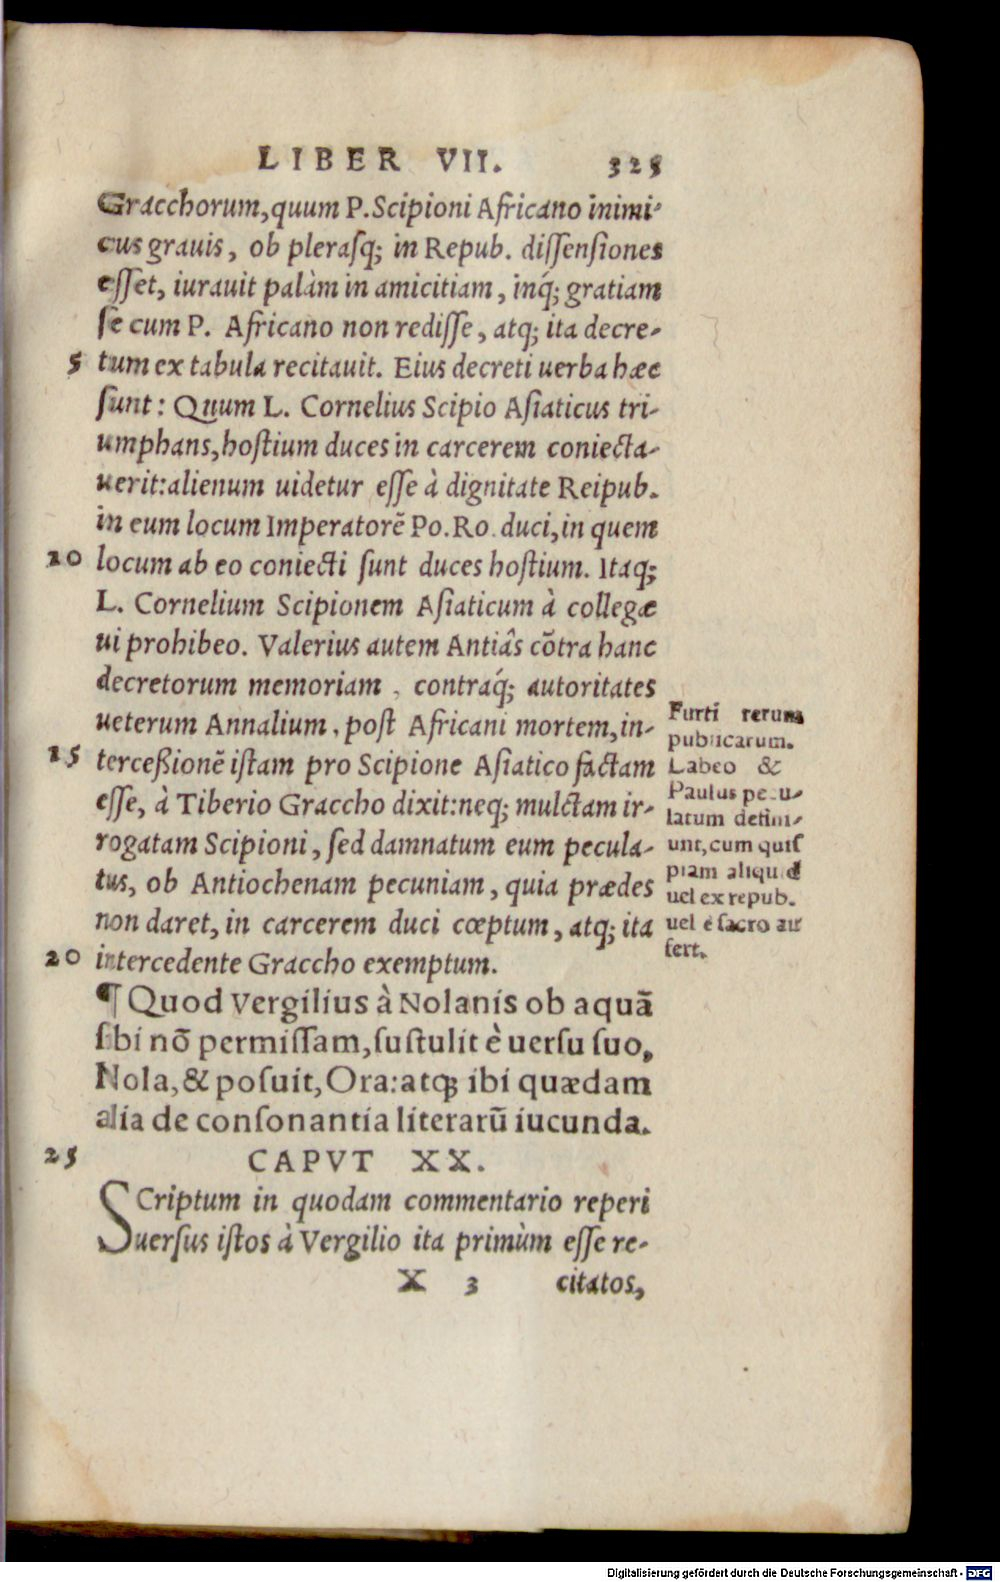 LIBER VII. 325
Gracchorum, quum P. Scipioni Africano inimi-
cus grauis, ob plerasq; in Repub. dissensiones
esset, iurauit palàm in amicitiam, inq́; gratiam
se cum P. Africano non redisse, atq; ita decre-
5 tum ex tabula recitauit. Eius decreti uerba hæc
sunt: Quum L. Cornelius Scipio Asiaticus tri-
umphans, hostium duces in carcerem coniecta-
uerit: alienum uidetur esse à dignitate Reipub.
in eum locum Imperatorē Po. Ro. duci, in quem
10 locum ab eo coniecti sunt duces hostium. Itaq;
L. Cornelium Scipionem Asiaticum à collegæ
ui prohibeo. Valerius autem Antiâs cōtra hanc
decretorum memoriam, contraq́; autoritates
ueterum Annalium, post Africani mortem, in-
15 terceßionē istam pro Scipione Asiatico factam
esse, à Tiberio Graccho dixit: neq; mulctam ir-
rogatam Scipioni, sed damnatum eum pecula-
tus, ob Antiochenam pecuniam, quia prædes
non daret, in carcerem duci cœptum, atq; ita
20 intercedente Graccho exemptum.
¶ Quod Vergilius à Nolanis ob aquā
sibi nō permissam, sustulit è uersu suo,
Nola, & posuit, Ora: atq; ibi quædam
alia de consonantia literarū iucunda.
25 CAPVT XX.
SCriptum in quodam commentario reperi
uersus istos à Vergilio ita primùm esse re-
X 3 citatos,
Furti rerum
publicarum.
Labeo &
Paulus pecu-
latum detini-
unt, cum quis
piam aliquid
uel ex repub.
uel è sacro au
fert.
Digitalisierung gefördert durch die Deutsche Forschungsgemeinschaft - DFG